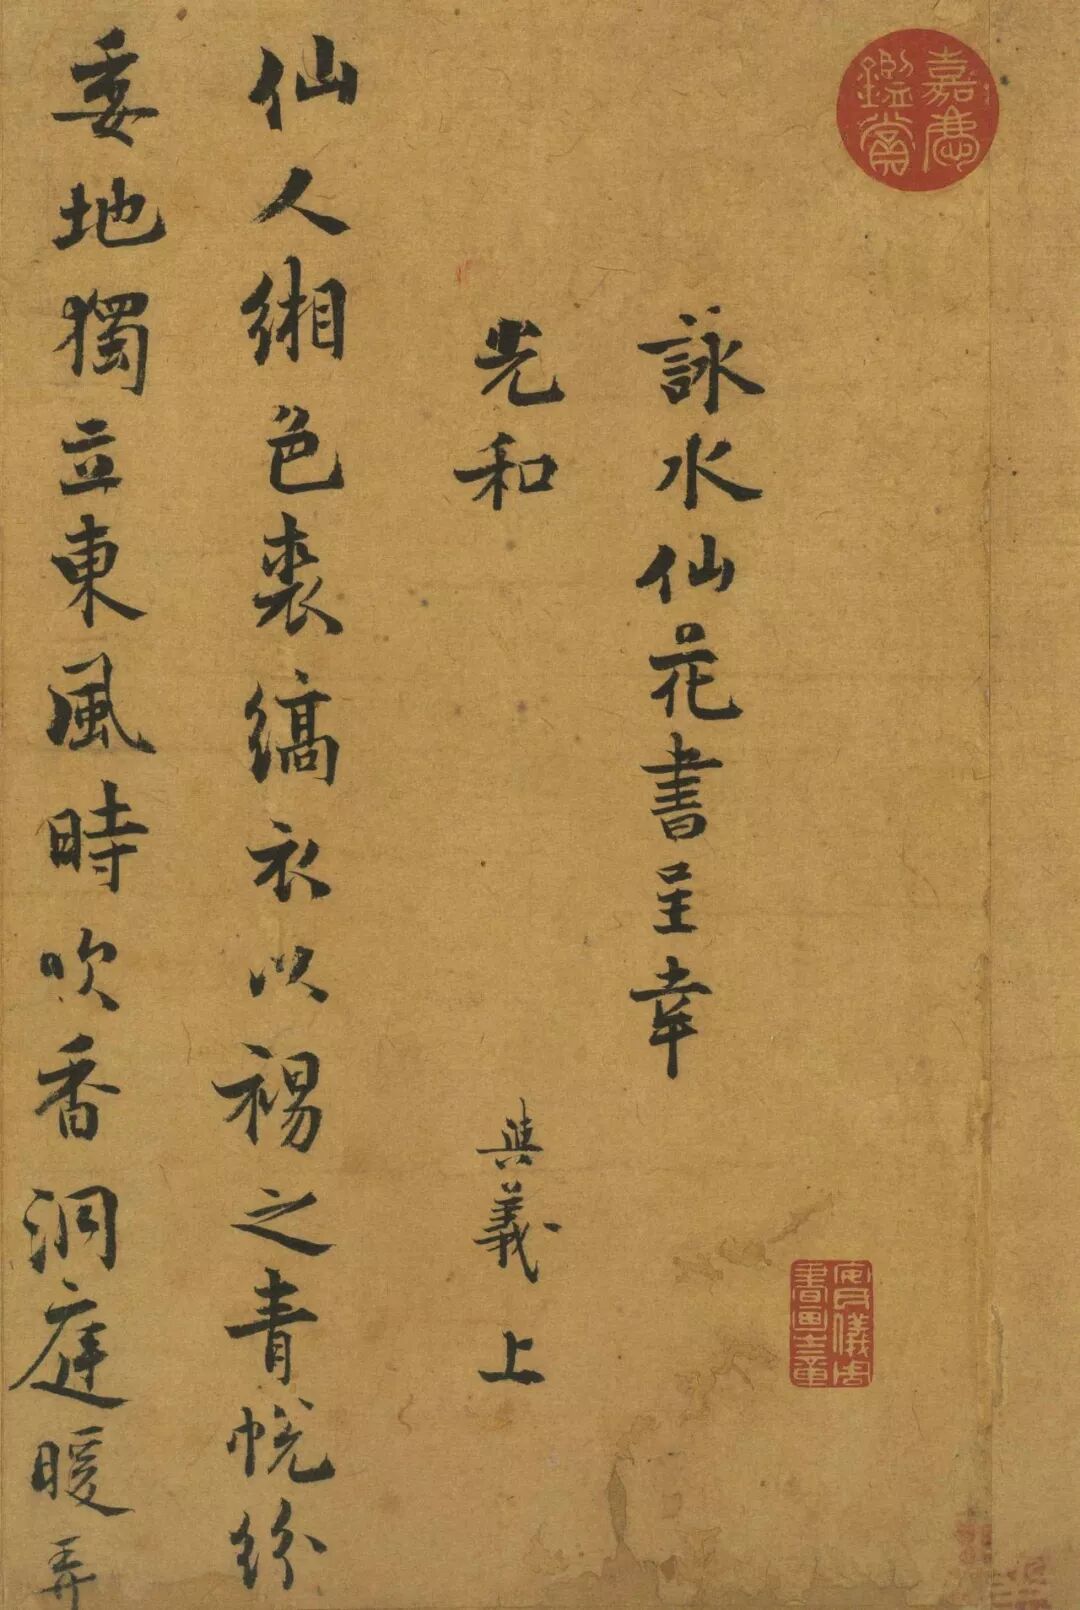 嘉慶鑑賞
詠水仙花書呈幸
先和
與義上
安氏儀周書畫之章
仙人緗色裘縞衣以裼之青帨紛
委地獨立東風時吹香洞庭暖弄